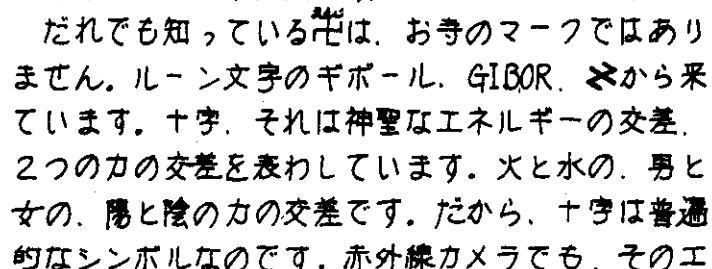 だれでも知っている卍は、お寺のマークではあり
ません。ルーン文字のギボール、GIBOR、から来
ています。十字、それは神聖なエネルギーの交差、
2つの力の交差を表わしています。火と水の、男と
女の、陽と陰の力の交差です。だから、十字は普遍
的なシンボルなのです。赤外線カメラでも、そのエ